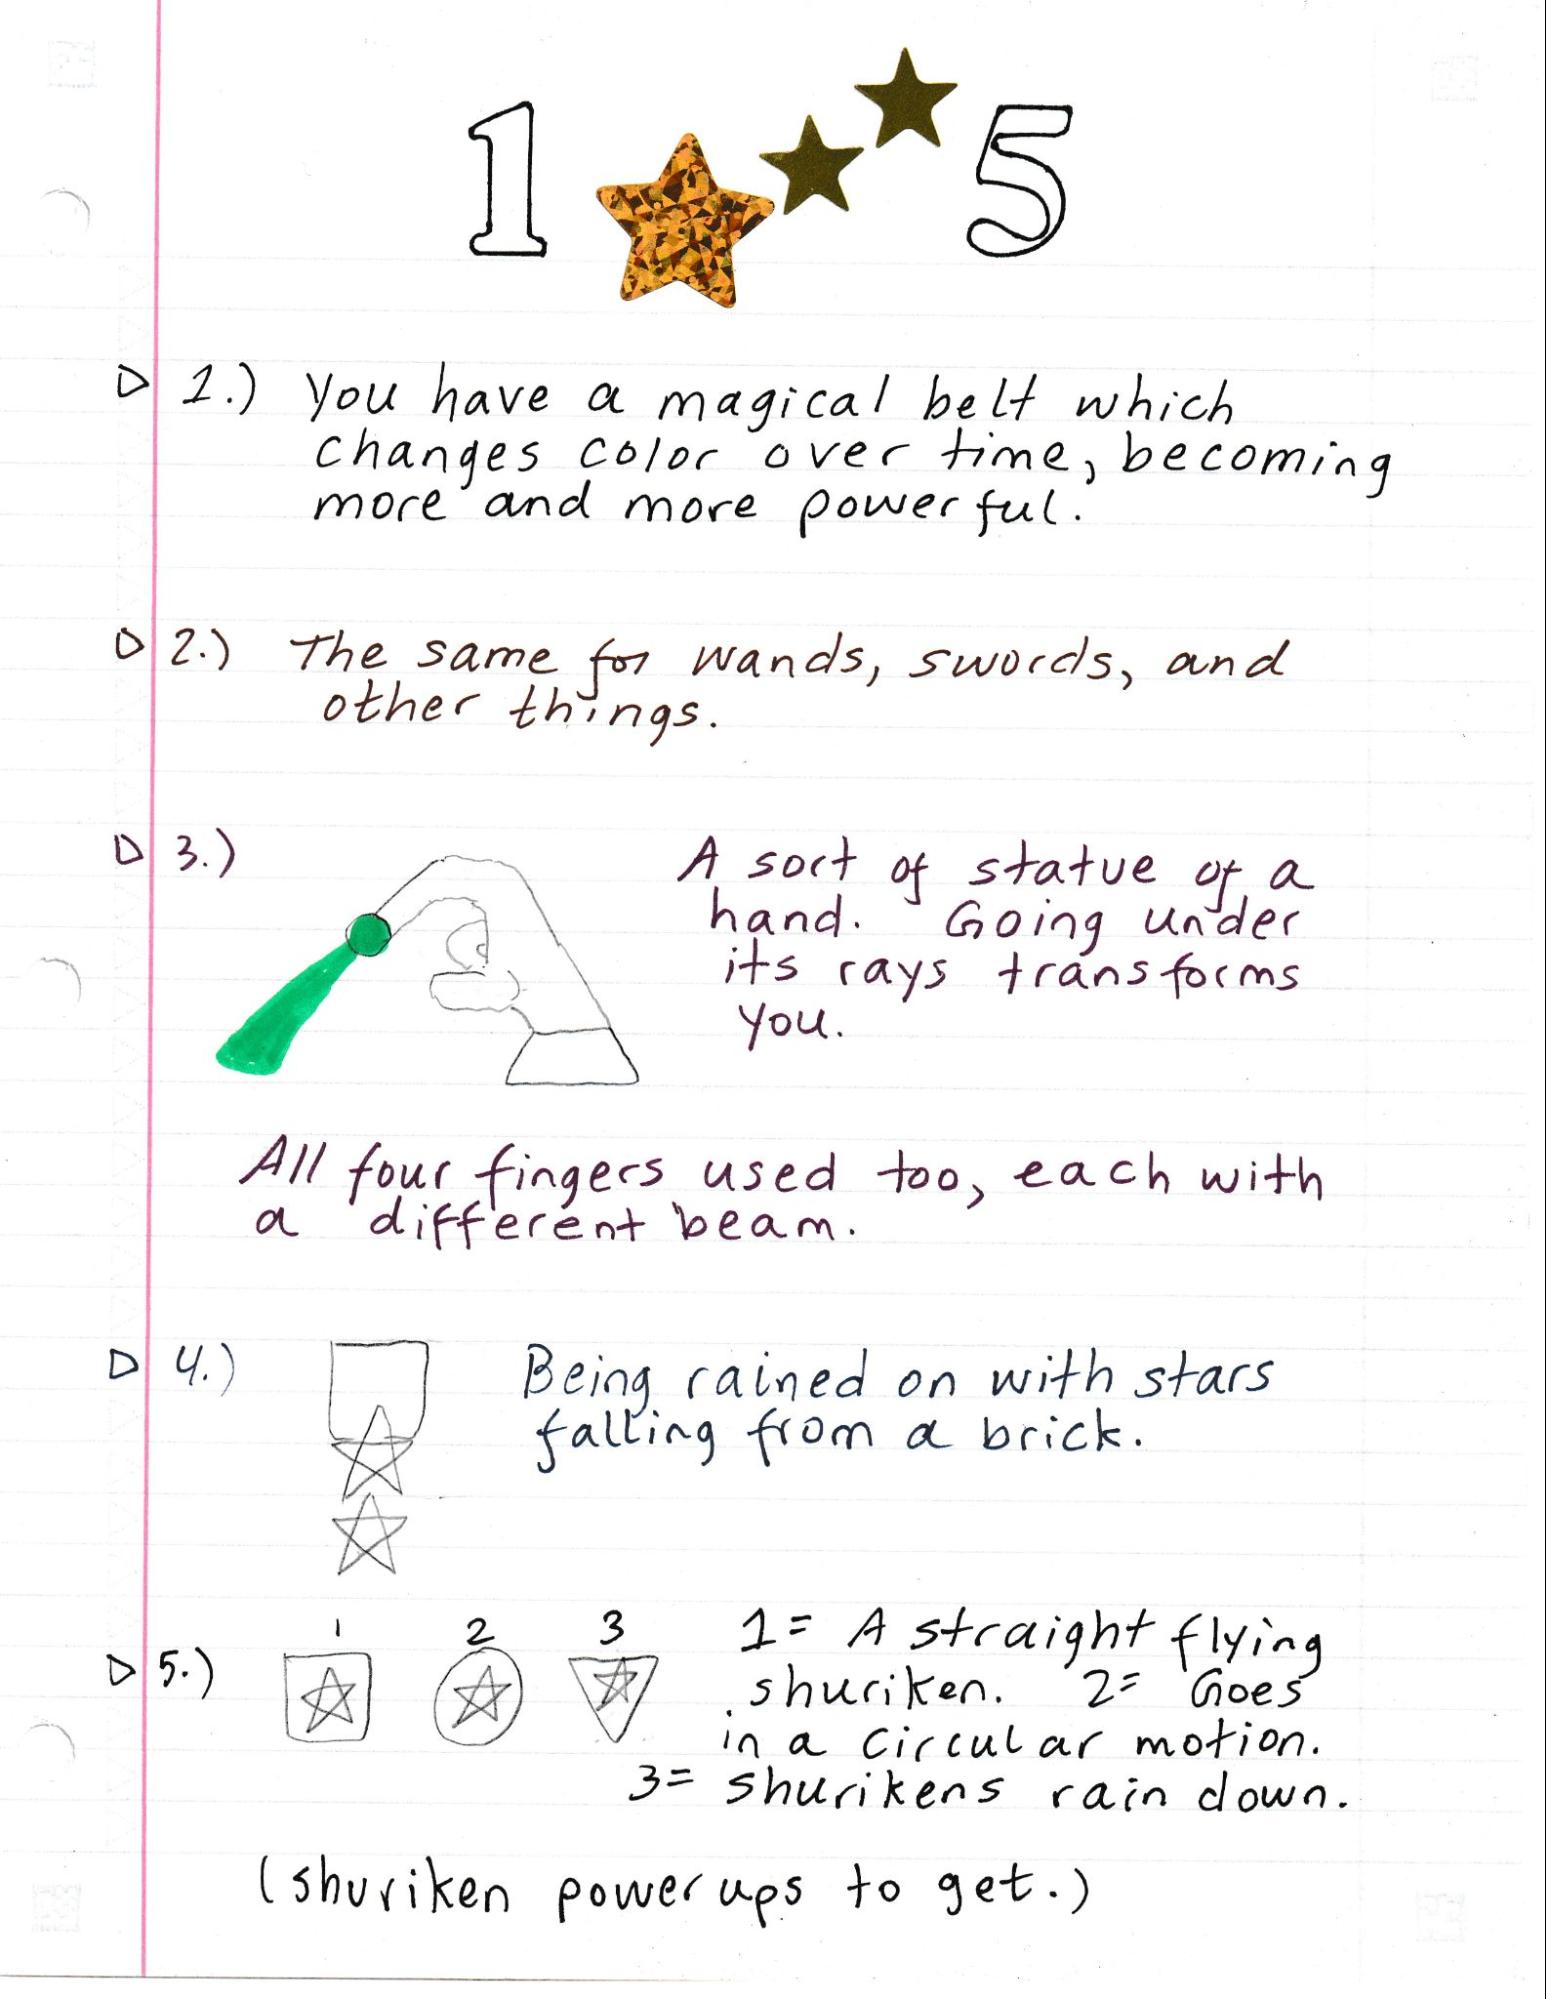 1 5
1.) You have a magical belt which
changes color over time, becoming
more and more powerful.
2.) The same for wands, swords, and
other things.
3.) A sort of statue of a
hand. Going under
its rays transforms
you.
All four fingers used too, each with
a different beam.
4.) Being rained on with stars
falling from a brick.
5.) 1 2 3 1= A straight flying
shuriken. 2= Goes
in a circular motion.
3= shurikens rain down.
(shuriken power ups to get.)